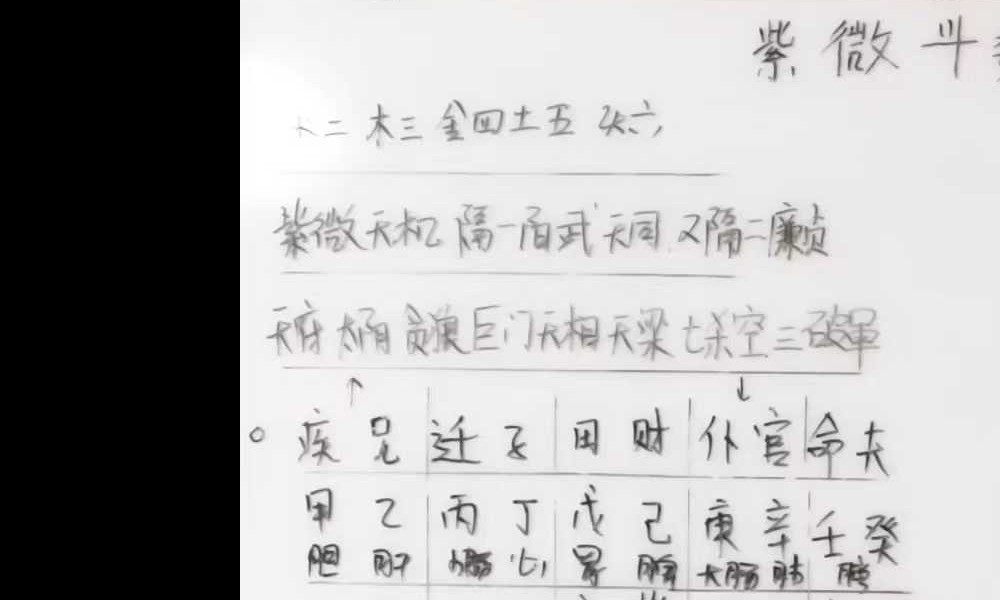 紫微斗
二木三金四土五火六
紫微天机隔一阳武天同又隔二廉贞
天府太阴贪狼巨门天相天梁七杀空三破军
疾兄迁子田财仆官命夫
甲乙丙丁戊己庚辛壬癸
胆肝小肠心胃脾大肠肺